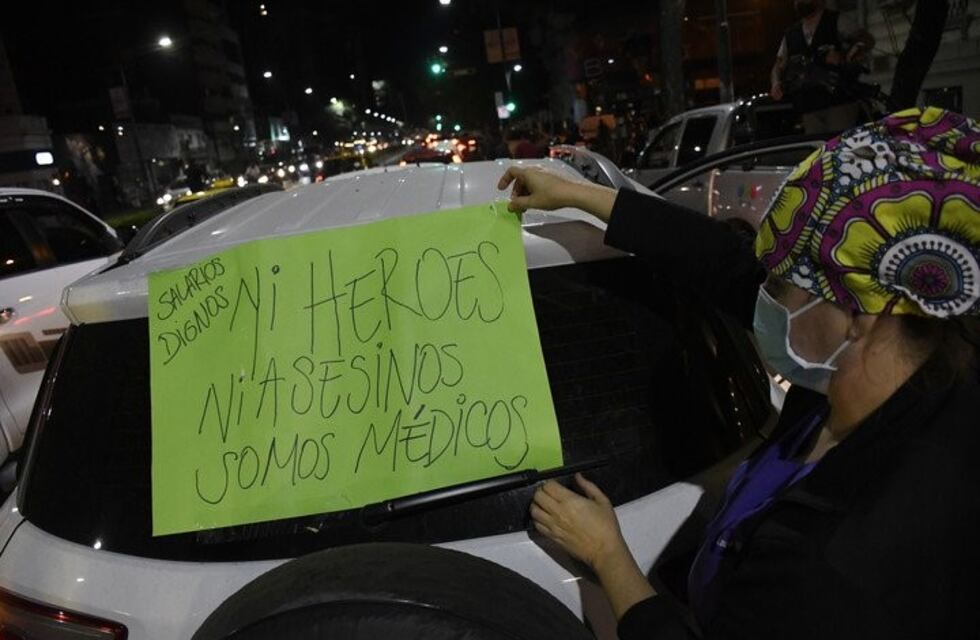 SALARIOS
DIGNOS
Ni HEROES
Ni ASESINOS
SOMOS MÉDICOS